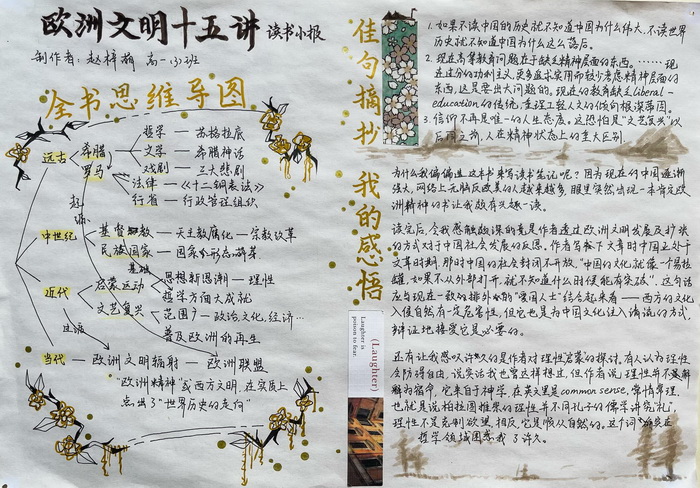 欧洲文明十五讲 读书小报
制作者：赵梓梅 高一(3)班
全书思维导图
远古
希腊
罗马
哲学 — 苏格拉底
文学 — 希腊神话
戏剧 — 三大悲剧
法律 —《十二铜表法》
行省 — 行政管理组织
起源
中世纪
基督教 — 天主教腐化 — 宗教改革
民族国家 — 国家
基础
近代
启蒙运动
思想新思潮 — 理性
哲学方面大成就
文艺复兴
范围广 — 政治,文化,经济…
普及欧洲的再生
过渡
当代 — 欧洲文明辐射 — 欧洲联盟
"欧洲精神"或西方文明,在实质上
点出了"世界历史的走向"
佳句摘抄
1. 如果不读中国的历史就不知道中国为什么伟大,不读世界
历史就不知道中国为什么这么落后。
2. 现在高等教育问题在于缺乏精神层面的东西。……现在
过分的功利主义,更多追求实用而较少考虑精神层面的
东西,这是要出大问题的。现在的教育缺乏liberal-
education的传统,重理工轻人文的倾向根深蒂固。
3. 信仰不再是唯一的人生态度。这恐怕是"文艺复兴"以
后与之前,人在精神状态上的重大区别。
我的感悟
为什么我偏偏选这本书来写读书笔记呢？因为现在的中国逐渐
强大,网络上无脑反欧美的人越来越多,眼里突然出现一本肯定欧
洲精神的书让我颇有兴趣一读。
读完后,令我感触颇深的竟是作者透过欧洲文明发展及扩张
的方式对于中国社会发展的反思。作者写下文章时中国正处于
文革时期,那时中国的社会封闭不开放。"中国的文化就像一个易拉
罐,如果不从外部打开,就不知道什么时候能有突破"。这句话
应与现在一致的排外的"爱国人士"结合起来看——西方的文化
入侵自然有一定危害性,但它也是为中国文化注入清流的方式,
辩证地接受它是必要的。
还有让我感叹许久的是作者对理性启蒙的探讨,有人认为理性
会防碍自由,说实话我也曾这样想过,但作者说,理性并不是解
释为宿命,它来自于神学,在英文里是common sense,常情常理,
也就是说柏拉图推崇的理性并不同孔子的儒学讲究"礼",
理性不是克制欲望,相反,它是顺从自然的。这个词确实在
哲学领域困惑我了许久。
Laughter is
poison to fear.
(Laughter)